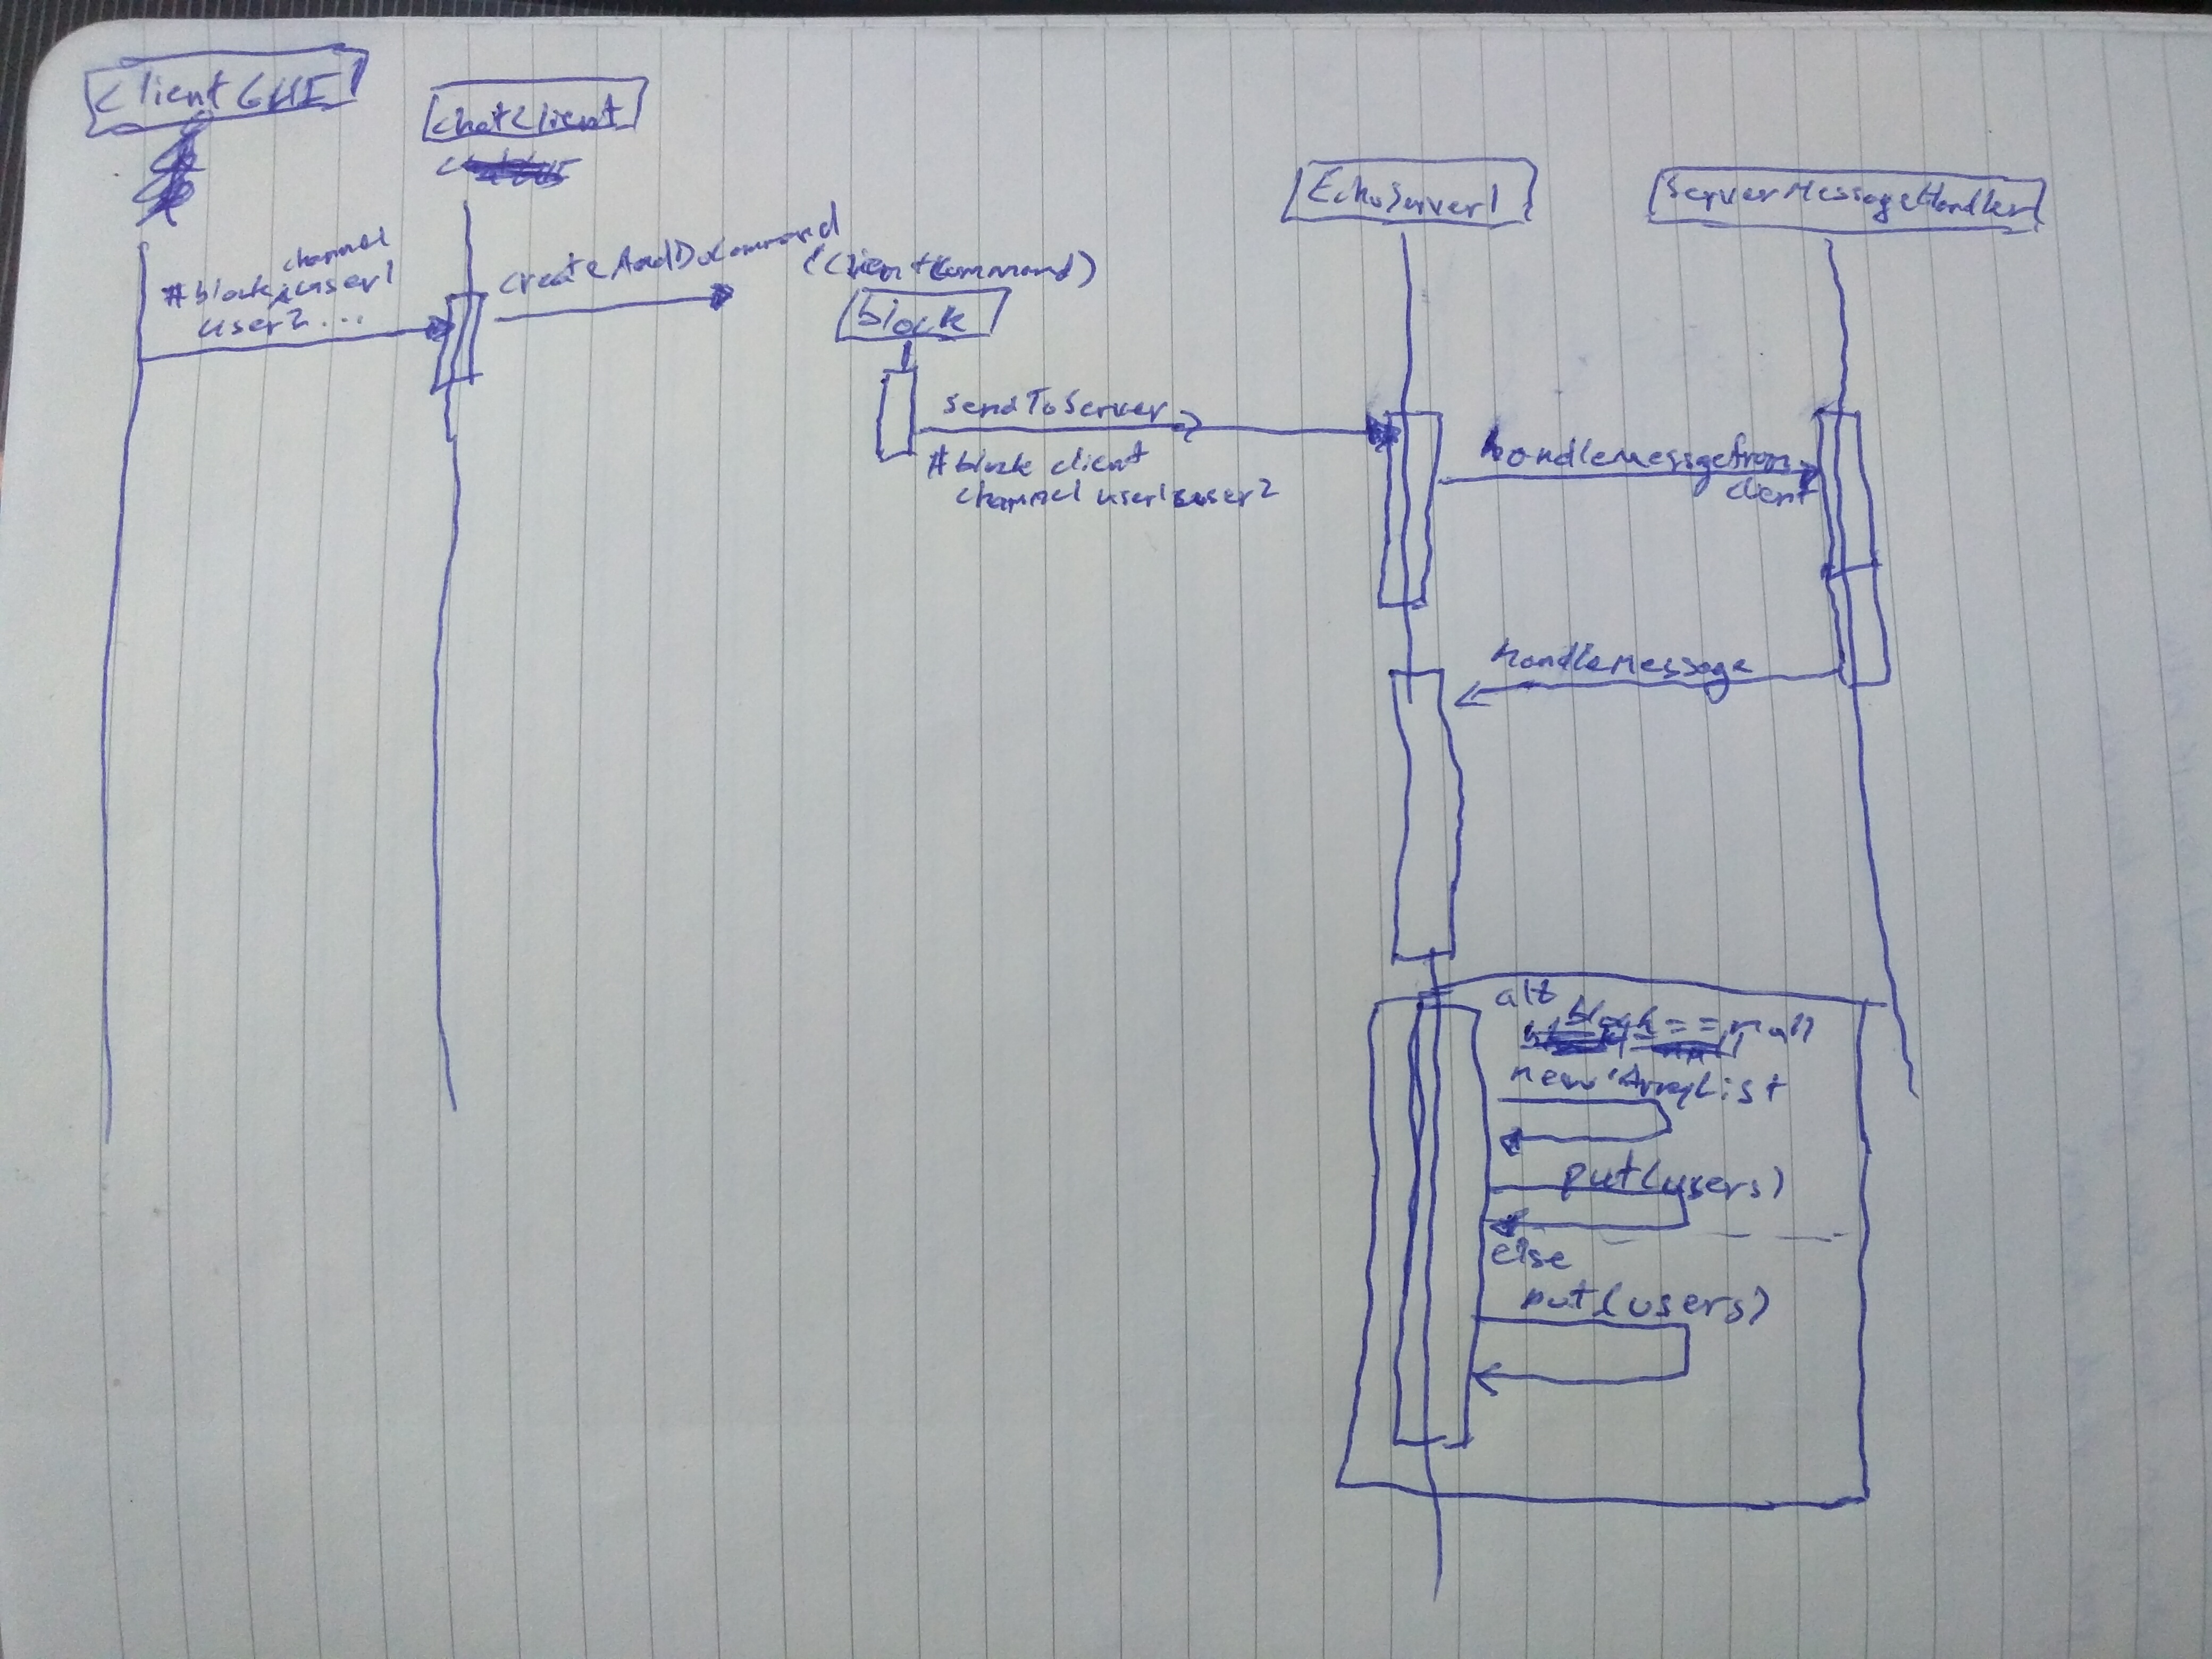 ClientGUI
ChatClient
EchoServer1
ServerMessageHandler
channel
#block user1
user2...
createAndDoCommand
(ClientCommand)
block
sendToServer
#block client
channel user1 user2
handleMessgefrom
client
handleMessage
alt
block == null
new ArrayList
put(users)
else
put(users)